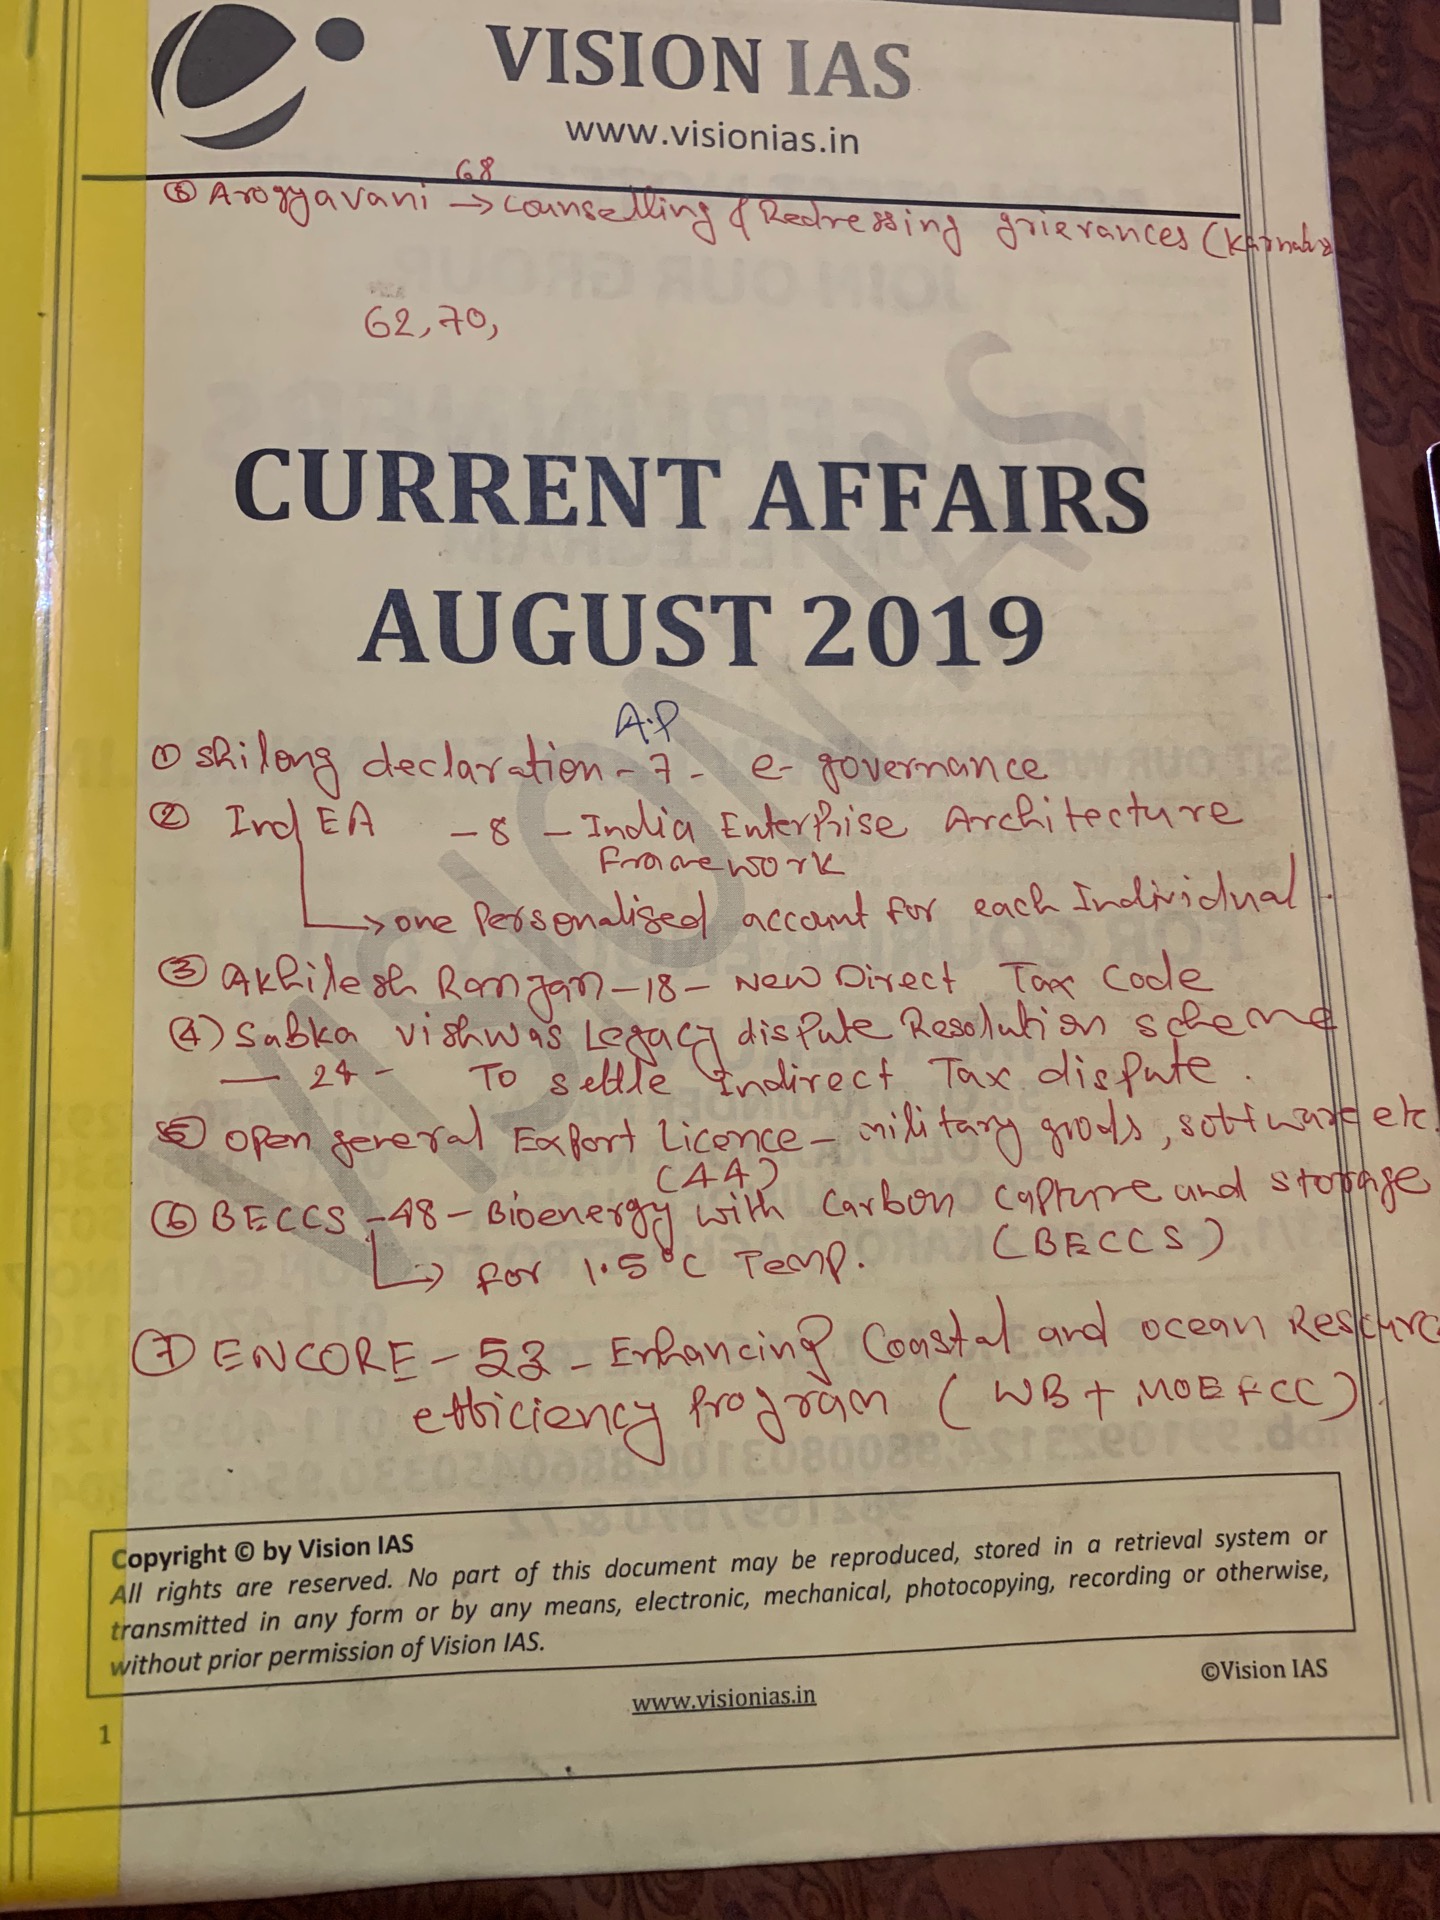 VISION IAS
www.visionias.in
68
⑧ Arogyavani → counselling & Redressing grievances (Karnataka
62, 70,
CURRENT AFFAIRS
AUGUST 2019
A.P
① Shilong declaration - 7 - e-governance
② IndEA - 8 - India Enterprise Architecture
Framework
→ one Personalised account for each Individual.
③ Akhilesh Ranjan - 18 - New Direct Tax Code
④ Sabka vishwas Legacy dispute Resolution scheme
— 24 - To settle Indirect Tax dispute.
⑤ open general Export Licence - military goods, software etc.
(44)
⑥ BECCS - 48 - Bioenergy with carbon capture and storage
(BECCS)
→ for 1.5°C Temp.
⑦ ENCORE - 53 - Enhancing Coastal and ocean Resource
efficiency Program (WB + MOEFCC)
Copyright © by Vision IAS
All rights are reserved. No part of this document may be reproduced, stored in a retrieval system or
transmitted in any form or by any means, electronic, mechanical, photocopying, recording or otherwise,
without prior permission of Vision IAS.
©Vision IAS
www.visionias.in
1
VISION IAS